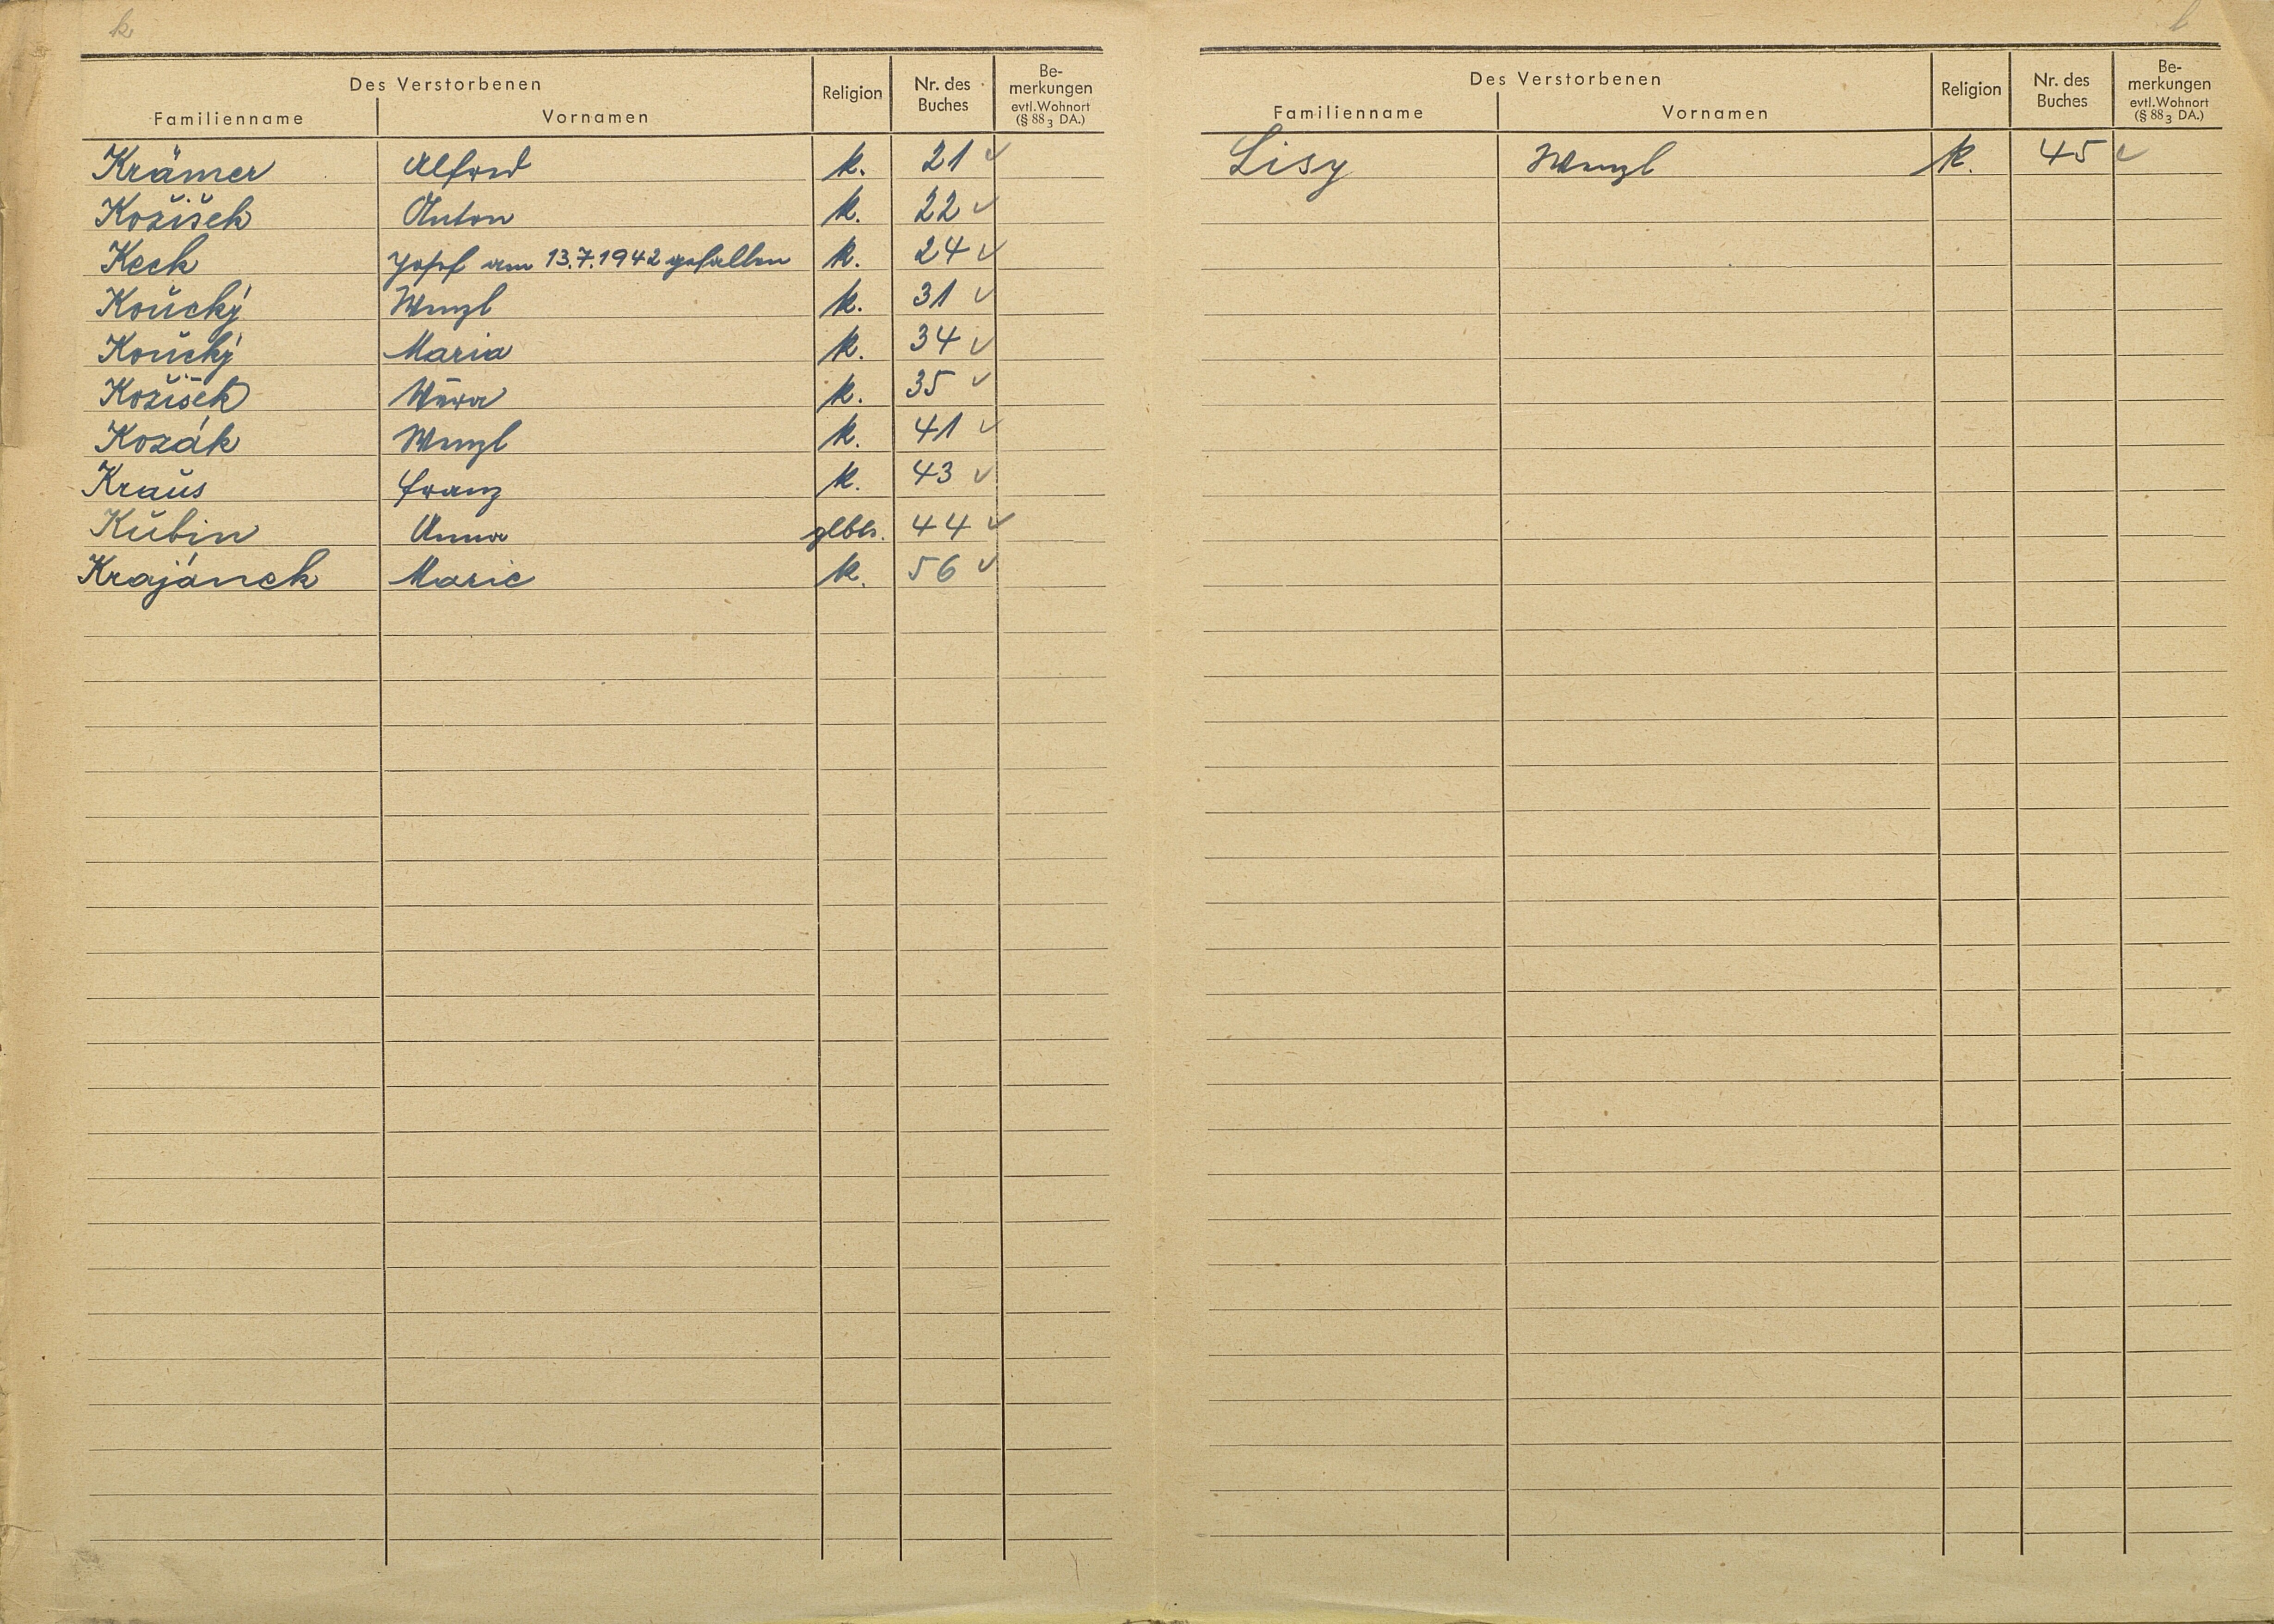 k
Des Verstorbenen
Familienname Vornamen Religion Nr. des Buches Be-merkungen evtl. Wohnort (§ 88 3 DA.)
Krämer Alfred k. 21 ✓
Kožišek Anton k. 22 ✓
Keck Josef am 13.7.1942 gefallen k. 24 ✓
Koucký Wenzl k. 31 ✓
Koucký Maria k. 34 ✓
Kožišek Wera k. 35 ✓
Kozák Wenzl k. 41 ✓
Kraus Franz k. 43 ✓
Kubin Anna glbls. 44 ✓
Krajánek Marie k. 56 ✓
l
Des Verstorbenen
Familienname Vornamen Religion Nr. des Buches Be-merkungen evtl. Wohnort (§ 88 3 DA.)
Lisy Wenzl k. 45 ✓